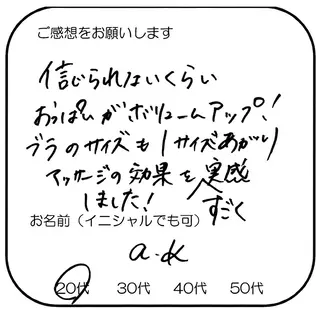 ご感想をお願いします
信じられないくらい
おっぱいがボリュームアップ!
ブラのサイズも1サイズあがり
マッサージの効果を実感
しました! すごく
お名前(イニシャルでも可)
a.k
20代 30代 40代 50代